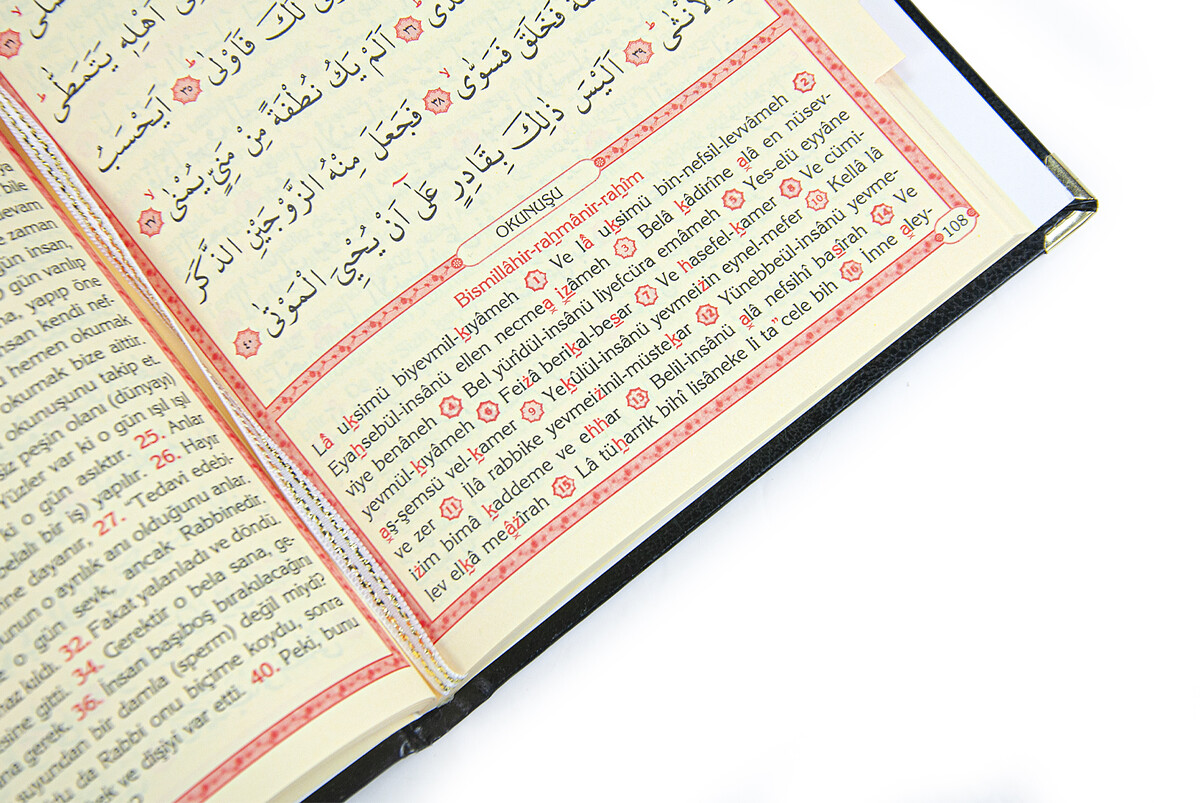 اَهْلِه۪ يَتَمَطّٰىۜ ﴿٣٣﴾
لَكَ فَاَوْلٰىۙ ﴿٣٥﴾ اَيَحْسَبُ
﴿٣٦﴾ اَلَمْ يَكُ نُطْفَةً مِنْ مَنِيٍّ يُمْنٰىۙ ﴿٣٧﴾
فَخَلَقَ فَسَوّٰىۙ ﴿٣٨﴾ فَجَعَلَ مِنْهُ الزَّوْجَيْنِ الذَّكَرَ
وَالْاُنْثٰىۜ ﴿٣٩﴾ اَلَيْسَ ذٰلِكَ بِقَادِرٍ عَلٰٓى اَنْ يُحْيِيَ الْمَوْتٰى ﴿٤٠﴾
OKUNUŞU
Bismillâhir-rahmânir-rahîm
Lâ uksimü biyevmil-kıyâmeh 1 Ve lâ uksimü bin-nefsil-levvâmeh 2
Eyahsebül-insânü ellen necmea izâmeh 3 Belâ kâdirîne alâ en nüsev-
viye benâneh 4 Bel yürîdül-insânü liyefcüra emâmeh 5 Yes-elü eyyâne
yevmül-kıyâmeh 6 Feizâ berikal-besar 7 Ve hasefel-kamer 8 Ve cümi-
aş-şemsü vel-kamer 9 Yekûlül-insânü yevmeizin eynel-mefer 10 Kellâ lâ
ve zer 11 İlâ rabbike yevmeizinil-müstekar 12 Yünebbeül-insânü yevme-
izim bimâ kaddeme ve ehhar 13 Belil-insânü alâ nefsihî basîrah 14 Ve
lev elkâ meâzîrah 15 Lâ tüharrik bihî lisâneke li ta"cele bih 16 İnne aley-
108
bile
devam
zaman
gün insan,
o gün varılıp
yapıp öne
insan kendi nef-
hemen okumak
okumak bize aittir.
okunuşunu takip et.
siz peşin olanı (dünyayı)
Yüzler var ki o gün ışıl ışıl
ki o gün asıktır. 25. Anlar
belalı bir iş) yapılır. 26. Hayır
dayanır, 27. "Tedavi edebi-
unun o ayrılık anı olduğunu anlar.
o gün sevk, ancak Rabbinedir.
kıldı. 32. Fakat yalanladı ve döndü.
gitti. 34. Gerektir o bela sana, ge-
gerek. 36. İnsan başıboş bırakılacağını
suyundan bir damla (sperm) değil miydi?
da Rabbi onu biçime koydu, sonra
ve dişiyi var etti. 40. Peki, bunu